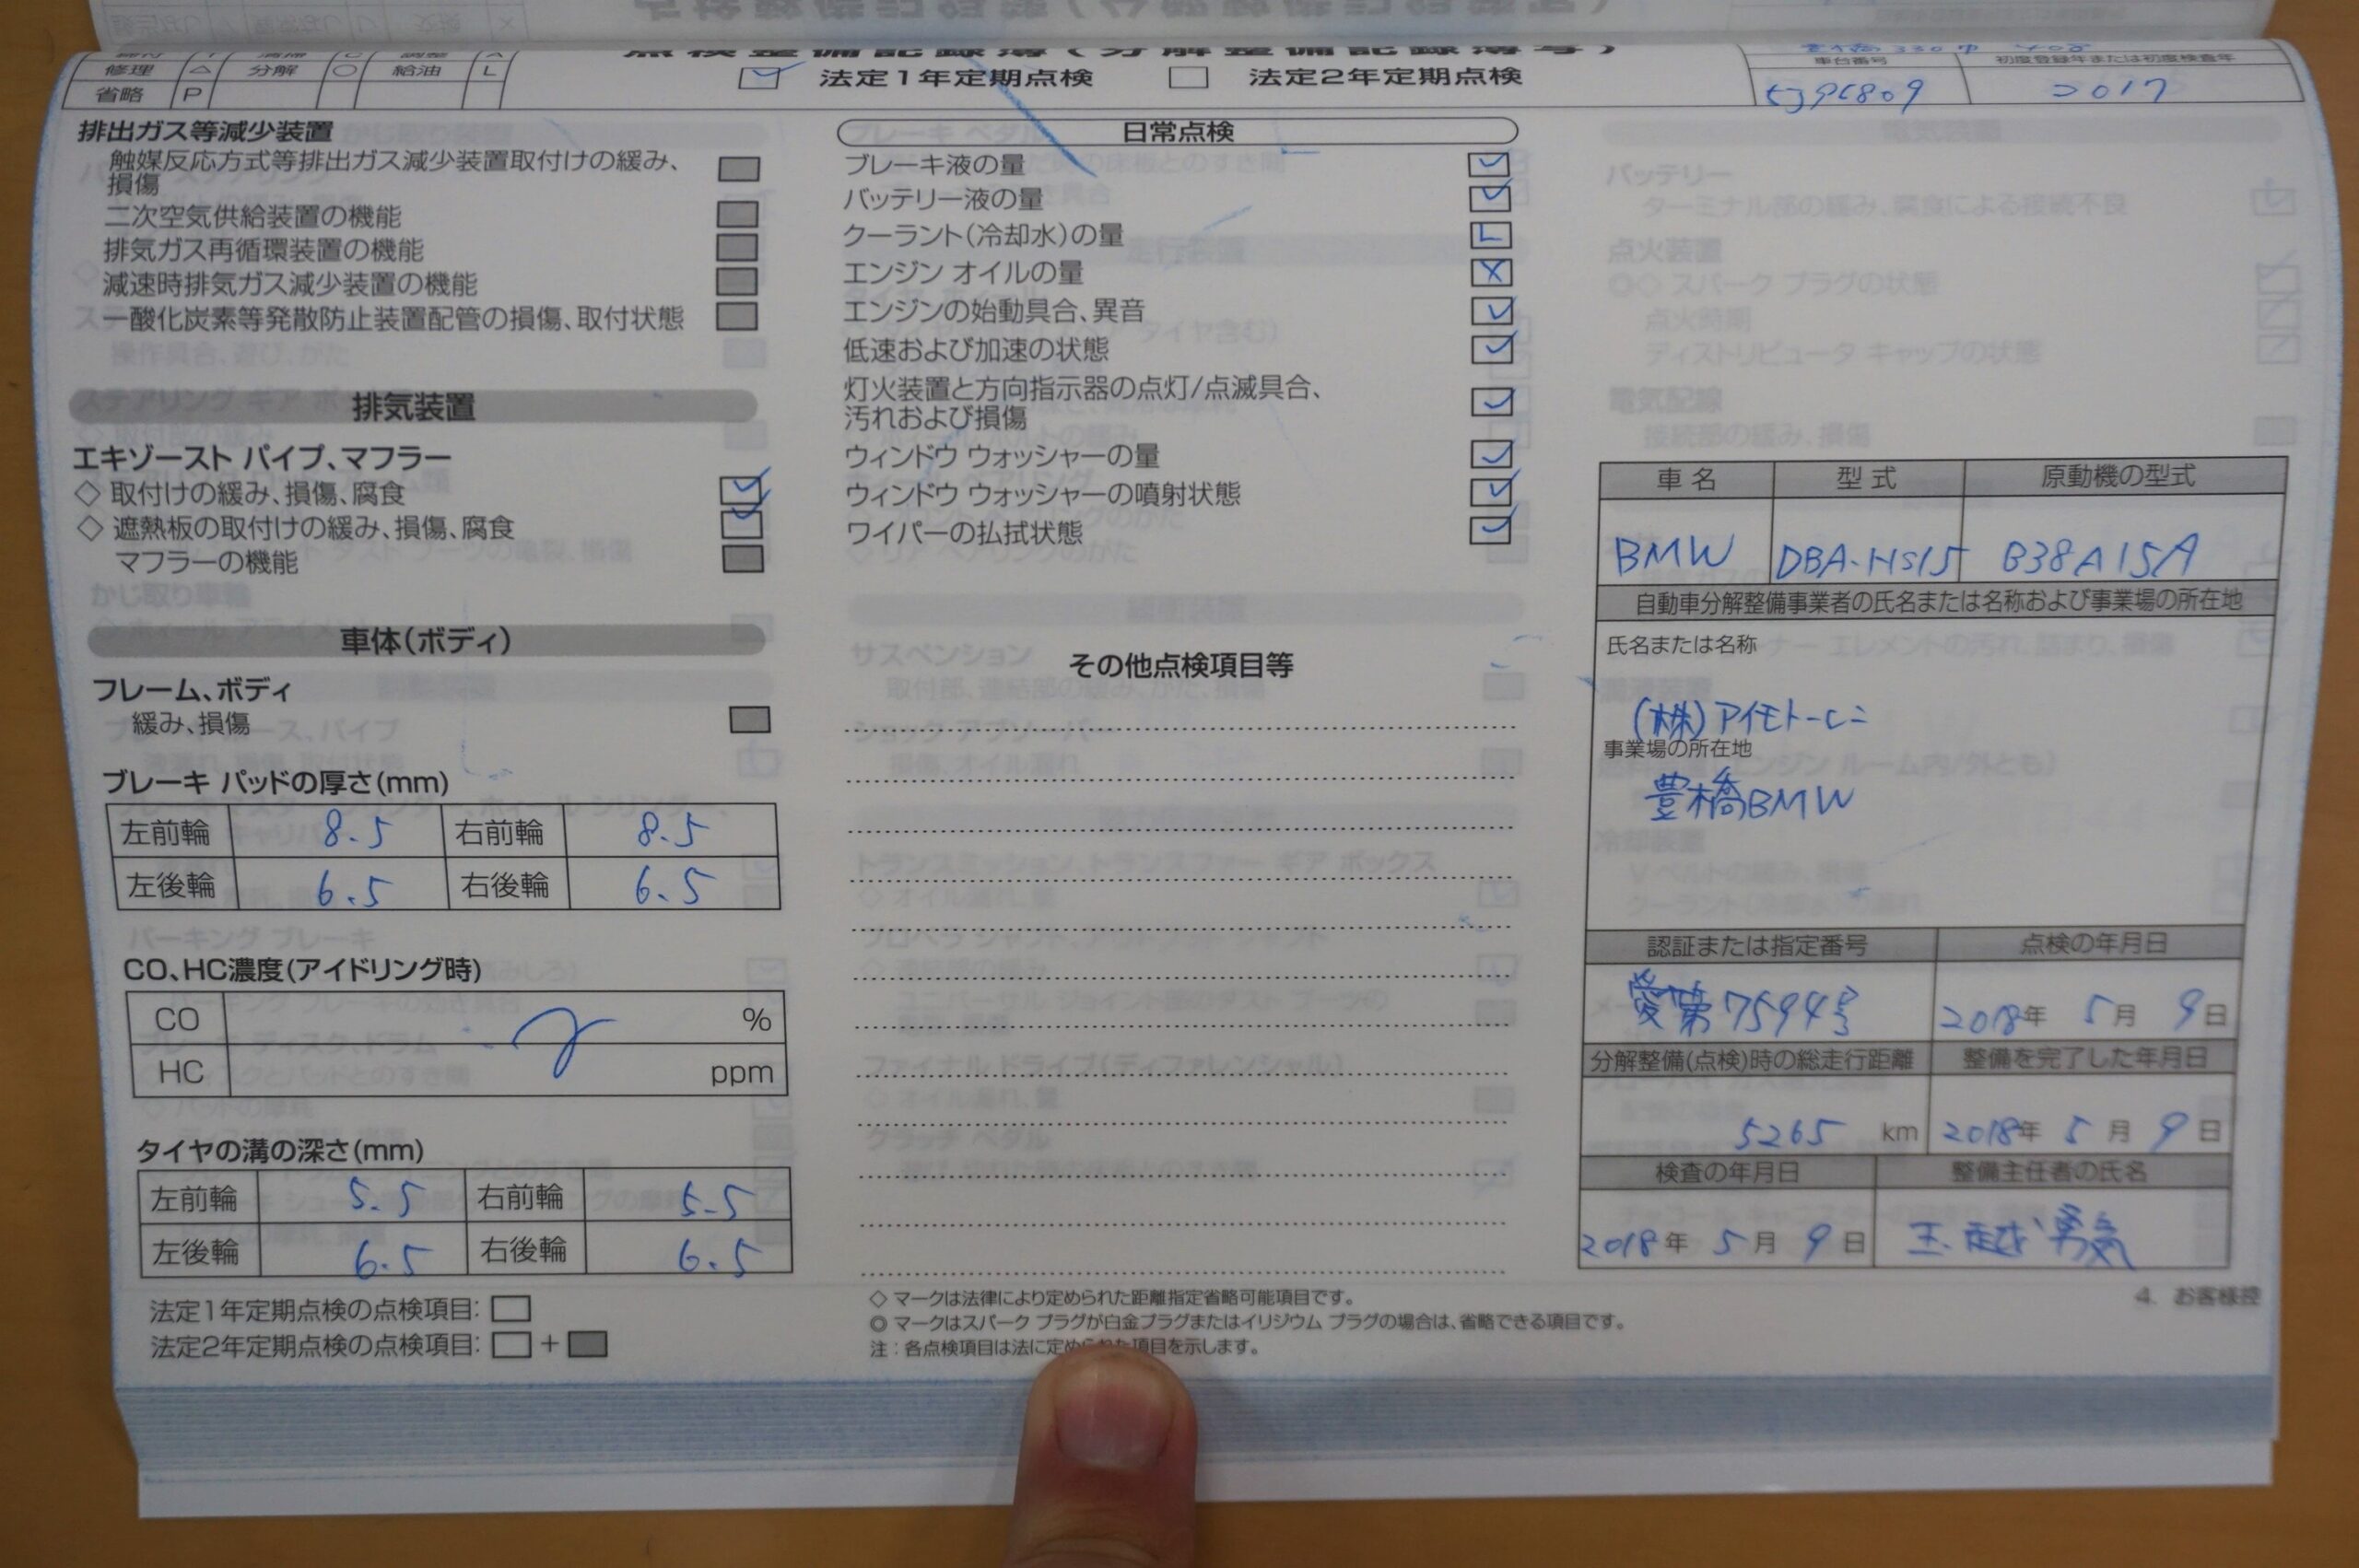 点検整備記録簿(分解整備記録簿写)
修理 △ 分解 ○ 給油 L
省略 P
法定1年定期点検 法定2年定期点検
車台番号 初度登録年または初度検査年
2017
排出ガス等減少装置
触媒反応方式等排出ガス減少装置取付けの緩み、
損傷
二次空気供給装置の機能
排気ガス再循環装置の機能
減速時排気ガス減少装置の機能
一酸化炭素等発散防止装置配管の損傷、取付状態
排気装置
エキゾースト パイプ、マフラー
◇ 取付けの緩み、損傷、腐食
◇ 遮熱板の取付けの緩み、損傷、腐食
マフラーの機能
車体(ボディ)
フレーム、ボディ
緩み、損傷
ブレーキ パッドの厚さ(mm)
左前輪 8.5 右前輪 8.5
左後輪 6.5 右後輪 6.5
CO、HC濃度(アイドリング時)
CO %
HC ppm
タイヤの溝の深さ(mm)
左前輪 5.5 右前輪 5.5
左後輪 6.5 右後輪 6.5
法定1年定期点検の点検項目:
法定2年定期点検の点検項目: +
日常点検
ブレーキ液の量
バッテリー液の量
クーラント(冷却水)の量 L
エンジン オイルの量 X
エンジンの始動具合、異音
低速および加速の状態
灯火装置と方向指示器の点灯/点滅具合、
汚れおよび損傷
ウィンドウ ウォッシャーの量
ウィンドウ ウォッシャーの噴射状態
ワイパーの払拭状態
その他点検項目等
◇ マークは法律により定められた距離指定省略可能項目です。
◎ マークはスパーク プラグが白金プラグまたはイリジウム プラグの場合は、省略できる項目です。
注:各点検項目は法に定められた項目を示します。
車名 型式 原動機の型式
BMW DBA-HS15 B38A15A
自動車分解整備事業者の氏名または名称および事業場の所在地
氏名または名称
(株)アイモトーヒニ
事業場の所在地
豊橋BMW
認証または指定番号 点検の年月日
愛第7594号 2018年 5月 9日
分解整備(点検)時の総走行距離 整備を完了した年月日
5265 km 2018年 5月 9日
検査の年月日 整備主任者の氏名
2018年 5月 9日 玉越勇気
4. お客様控